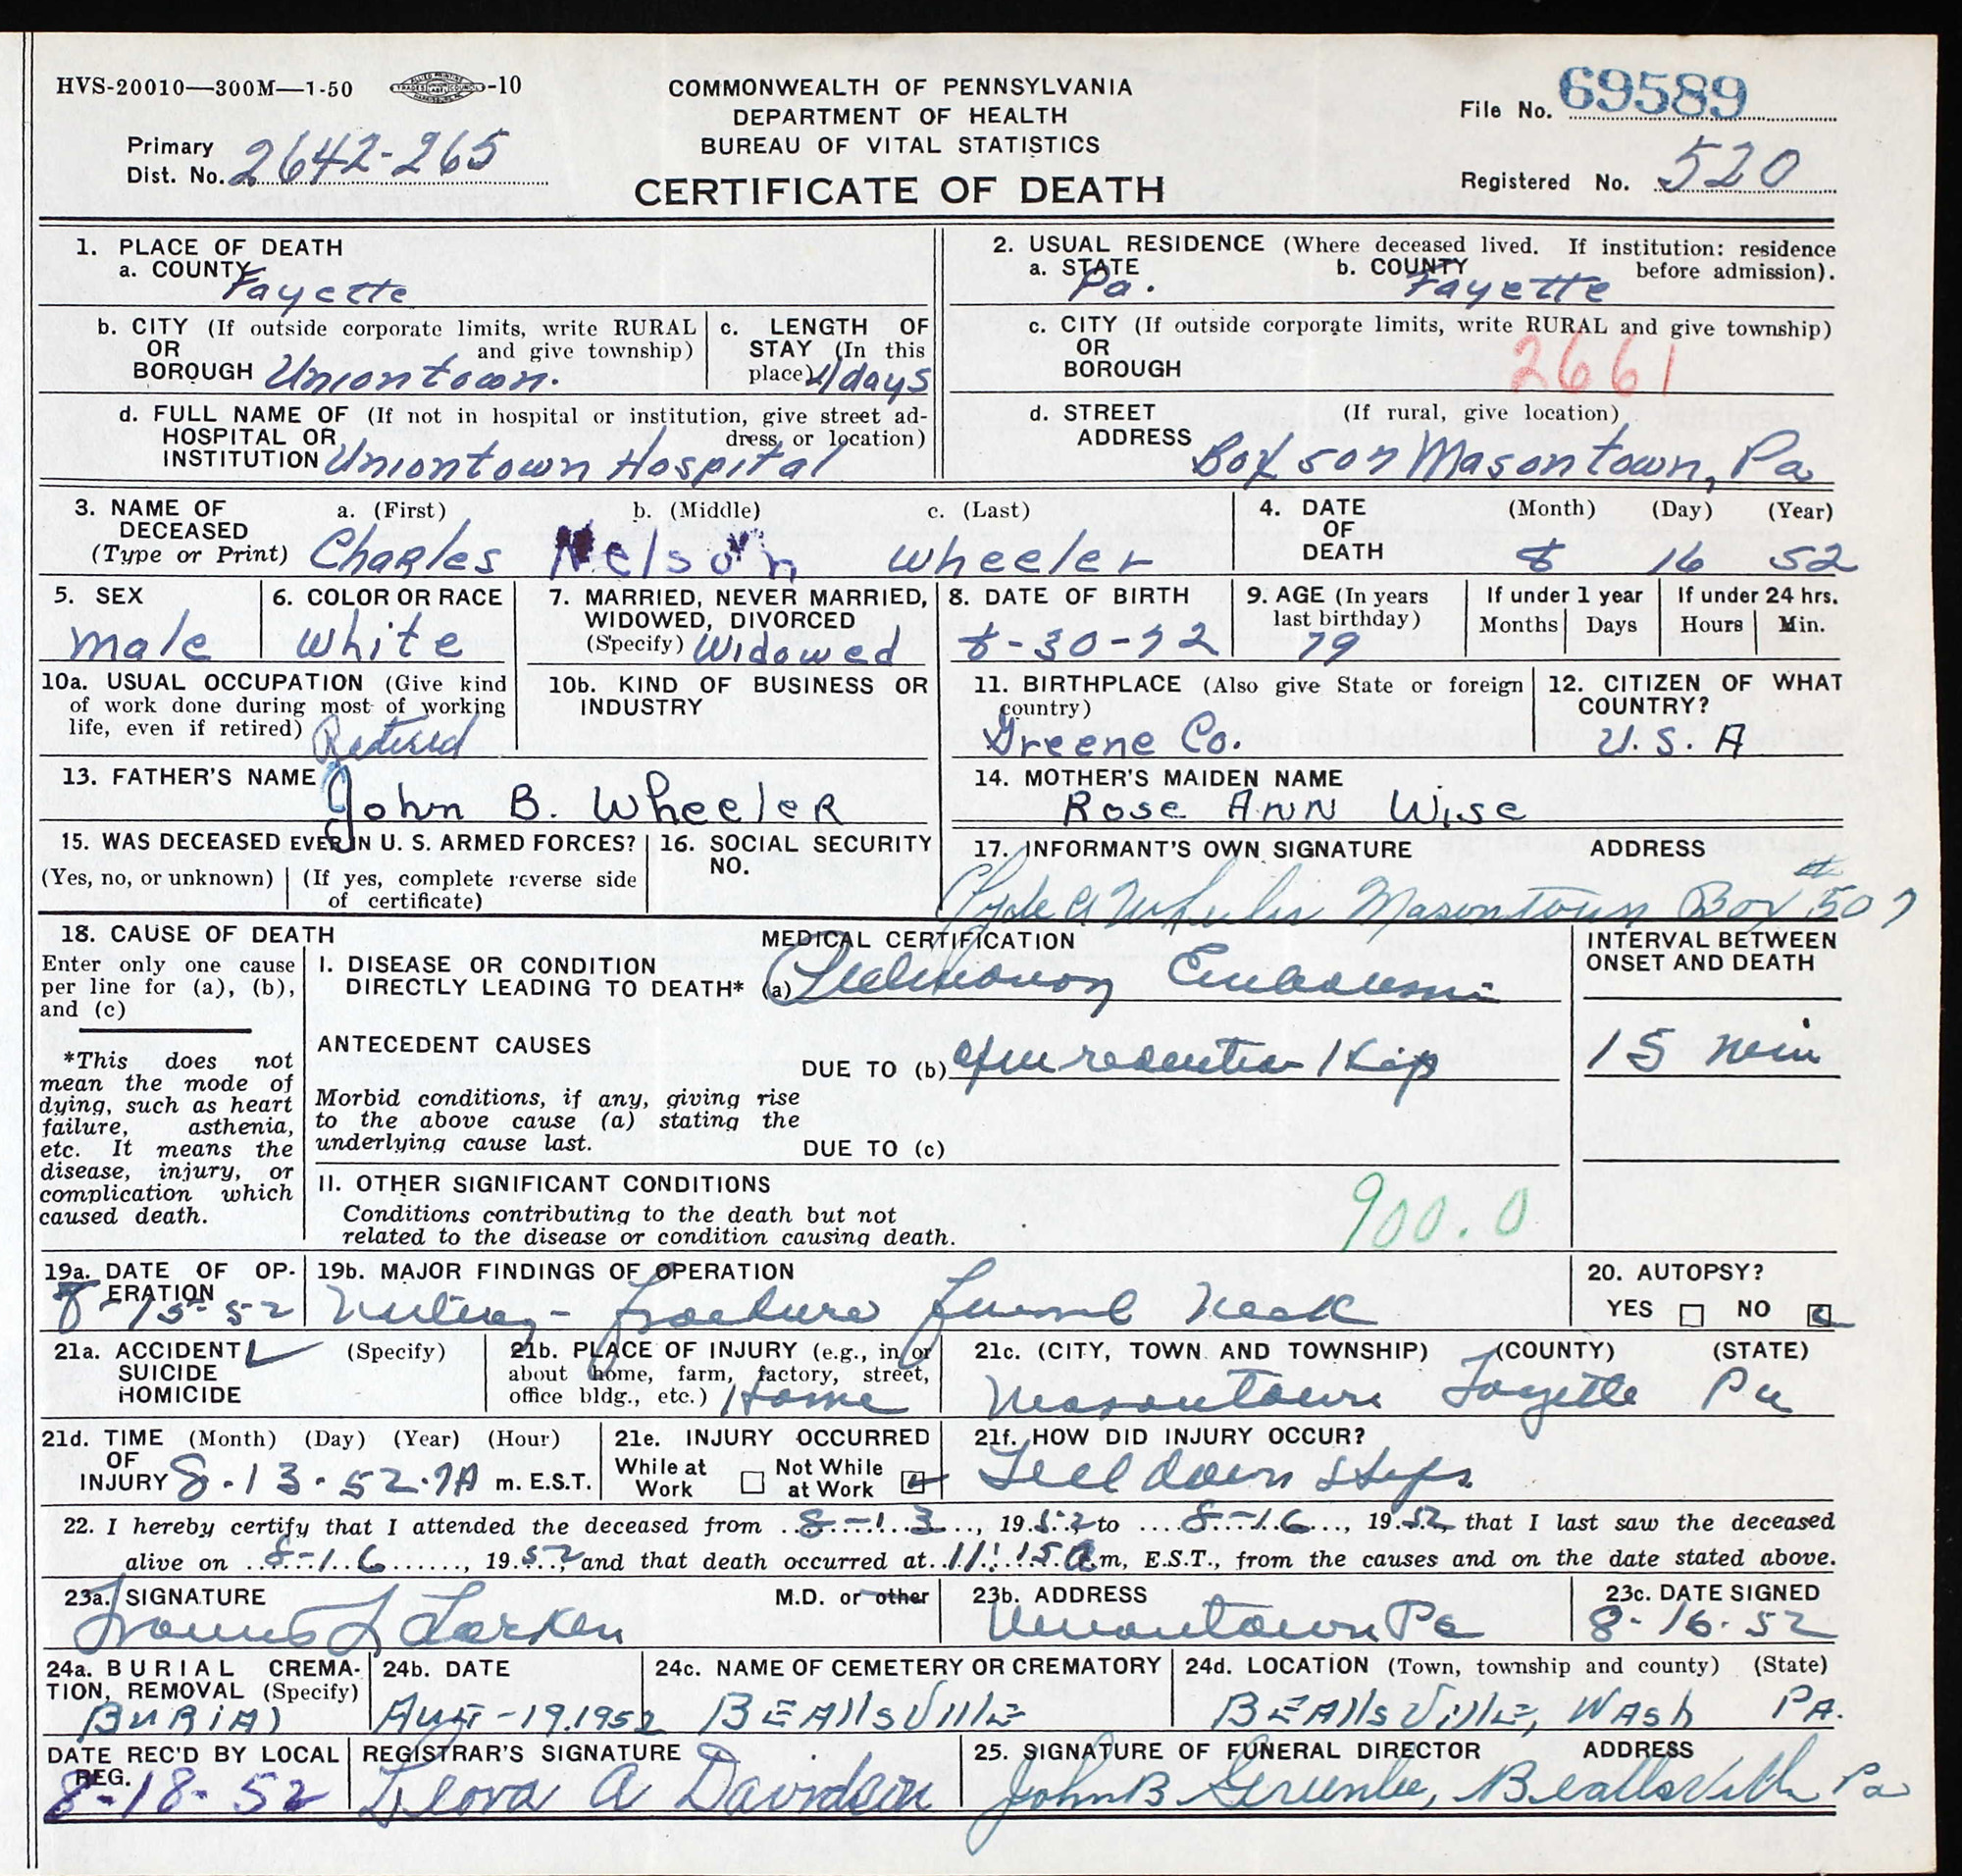 HVS-20010—300M—1-50 -10
COMMONWEALTH OF PENNSYLVANIA
DEPARTMENT OF HEALTH
BUREAU OF VITAL STATISTICS
CERTIFICATE OF DEATH
Primary
Dist. No. 2642-265
File No. 69589
Registered No. 520
1. PLACE OF DEATH
a. COUNTY
Fayette
b. CITY (If outside corporate limits, write RURAL
OR and give township)
BOROUGH Uniontown.
c. LENGTH OF
STAY (In this
place) 4 days
d. FULL NAME OF (If not in hospital or institution, give street ad-
HOSPITAL OR dress or location)
INSTITUTION Uniontown Hospital
2. USUAL RESIDENCE (Where deceased lived. If institution: residence
a. STATE b. COUNTY before admission).
Pa. Fayette
c. CITY (If outside corporate limits, write RURAL and give township)
OR
BOROUGH 2661
d. STREET (If rural, give location)
ADDRESS
Box 507 Masontown, Pa
3. NAME OF a. (First) b. (Middle) c. (Last)
DECEASED
(Type or Print) Charles Nelson Wheeler
4. DATE (Month) (Day) (Year)
OF
DEATH 8 16 52
5. SEX
Male
6. COLOR OR RACE
White
7. MARRIED, NEVER MARRIED,
WIDOWED, DIVORCED
(Specify) Widowed
8. DATE OF BIRTH
8-30-72
9. AGE (In years
last birthday)
79
If under 1 year
Months Days
If under 24 hrs.
Hours Min.
10a. USUAL OCCUPATION (Give kind
of work done during most of working
life, even if retired) Retired
10b. KIND OF BUSINESS OR
INDUSTRY
11. BIRTHPLACE (Also give State or foreign
country)
Greene Co.
12. CITIZEN OF WHAT
COUNTRY?
U.S.A
13. FATHER'S NAME
John B. Wheeler
14. MOTHER'S MAIDEN NAME
Rose Ann Wise
15. WAS DECEASED EVER IN U. S. ARMED FORCES?
(Yes, no, or unknown) (If yes, complete reverse side
of certificate)
16. SOCIAL SECURITY
NO.
17. INFORMANT'S OWN SIGNATURE ADDRESS
Clyde Wheeler Masontown Box # 507
18. CAUSE OF DEATH
Enter only one cause
per line for (a), (b),
and (c)
*This does not
mean the mode of
dying, such as heart
failure, asthenia,
etc. It means the
disease, injury, or
complication which
caused death.
MEDICAL CERTIFICATION
I. DISEASE OR CONDITION
DIRECTLY LEADING TO DEATH* (a) Pulmonary Embolism
ANTECEDENT CAUSES
DUE TO (b) Hip
Morbid conditions, if any, giving rise
to the above cause (a) stating the
underlying cause last.
DUE TO (c)
II. OTHER SIGNIFICANT CONDITIONS
Conditions contributing to the death but not
related to the disease or condition causing death.
900.0
INTERVAL BETWEEN
ONSET AND DEATH
15 min
19a. DATE OF OP-
ERATION
8-15-52
19b. MAJOR FINDINGS OF OPERATION
Fracture Neck
20. AUTOPSY?
YES NO
21a. ACCIDENT (Specify)
SUICIDE
HOMICIDE
21b. PLACE OF INJURY (e.g., in or
about home, farm, factory, street,
office bldg., etc.) Home
21c. (CITY, TOWN AND TOWNSHIP) (COUNTY) (STATE)
Masontown Fayette Pa
21d. TIME (Month) (Day) (Year) (Hour)
OF
INJURY 8-13-52-7A m. E.S.T.
21e. INJURY OCCURRED
While at Not While
Work at Work
21f. HOW DID INJURY OCCUR?
Fell down steps
22. I hereby certify that I attended the deceased from 8-13, 1952 to 8-16, 1952, that I last saw the deceased
alive on 8-16, 1952 and that death occurred at 11:15 a.m, E.S.T., from the causes and on the date stated above.
23a. SIGNATURE M.D. or other
L Larken
23b. ADDRESS
Uniontown Pa
23c. DATE SIGNED
8-16-52
24a. BURIAL CREMA-
TION, REMOVAL (Specify)
BURIAl
24b. DATE
Aug-19.1952
24c. NAME OF CEMETERY OR CREMATORY
BEAllsVillE
24d. LOCATION (Town, township and county) (State)
BEAllsVillE, WASh PA.
DATE REC'D BY LOCAL
REG.
8-18-52
REGISTRAR'S SIGNATURE
Leora A Davidson
25. SIGNATURE OF FUNERAL DIRECTOR ADDRESS
John B Greenlee, Beallsville Pa